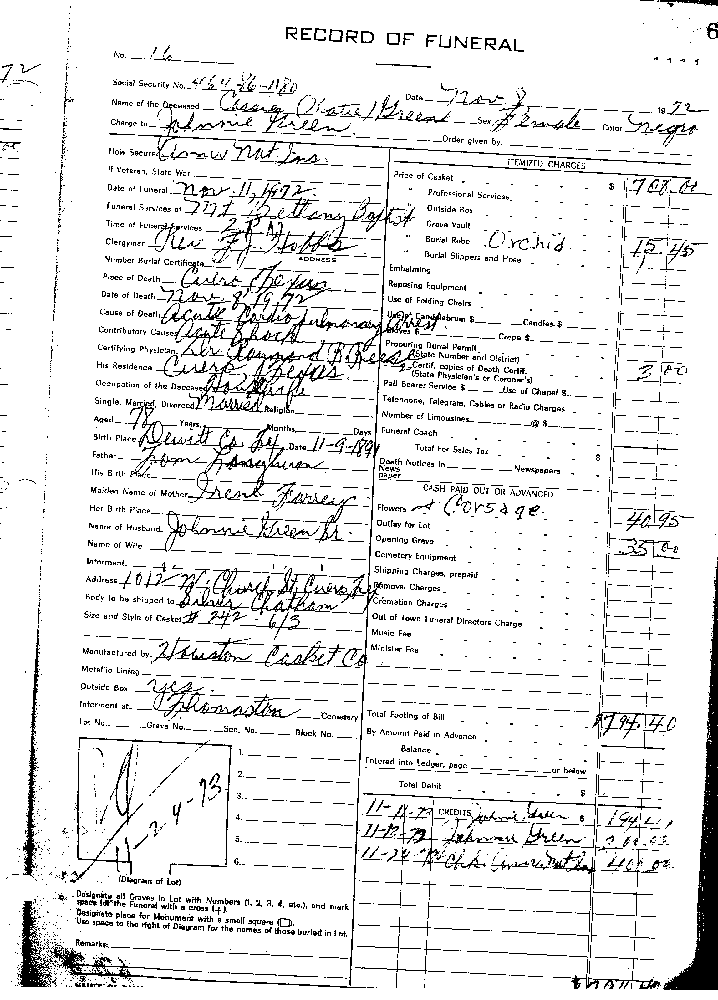 6
RECORD OF FUNERAL
No. 16
72
Social Security No.
Date Nov 8, 1972
Name of the Deceased Green Sex Female Color Negro
Charge to Johnnie Green Order given by
How Secured Nat Ins.
If Veteran, State War
Date of Funeral Nov. 11, 1972
Funeral Services of Mt Bethany Baptist
Time of Funeral Services 2 P.M
Clergyman Rev F.J. Hobbs
ADDRESS
Number Burial Certificate
Place of Death Cuero Texas
Date of Death Nov 8 1972
Cause of Death Acute Cardiopulmonary Arrest
Contributory Causes Acute Shock
Certifying Physician Raymond B. Reese
His Residence Cuero Texas
Occupation of the Deceased Housewife
Single, Married, Divorced Married Religion
Aged 78 Years Months Days
Birth Place Dewitt Co Tex Date 11-9-1894
Father Tom
His Birth Place
Maiden Name of Mother Irene
Her Birth Place
Name of Husband Johnnie Green Sr.
Name of Wife
Informant
Address 1012 W. Church St Cuero Tex
Body to be shipped to Chatham
Size and Style of Casket # 242 6/3
Manufactured by Houston Casket Co
Metallic Lining
Outside Box yes
Interment at Thomaston Cemetery
Lot No. Grave No. Sec. No. Block No.
1.
2.
3.
4.
5.
6.
11-24-73
(Diagram of Lot)
Designate all Graves in Lot with Numbers (1, 2, 3, 4, etc.), and mark
space for the Funeral with a cross (+).
Designate place for Monument with a small square (□).
Use space to the right of Diagram for the names of those buried in Lot.
Remarks:
ITEMIZED CHARGES
Price of Casket $ 700.00
" Professional Services
" Outside Box
" Grave Vault
" Burial Robe Orchid 15 45
" Burial Slippers and Hose
Embalming
Reposing Equipment
Use of Folding Chairs
Use of Candelabrum $ Candles $
Gloves $ Crepe $
Procuring Burial Permit
(State Number and District)
2 Certif. copies of Death Certif. 3 00
(State Physician's or Coroner's)
Pall Bearer Service $ Use of Chapel $
Telephone, Telegram, Cables or Radio Charges
Number of Limousines @ $
Funeral Coach
Total For Sales Tax $
Death Notices in Newspapers
News
paper
CASH PAID OUT OR ADVANCED
Flowers Corsage 40 95
Outlay for Lot
Opening Grave 35 00
Cemetery Equipment
Shipping Charges, prepaid
Remov. Charges
Cremation Charges
Out of Town Funeral Directors Charge
Music Fee
Minister Fee
Total Footing of Bill $794.40
By Amount Paid in Advance
Balance
Entered into Ledger, page or below
Total Debit $
CREDITS Johnnie Green $
Johnnie Green
400.00